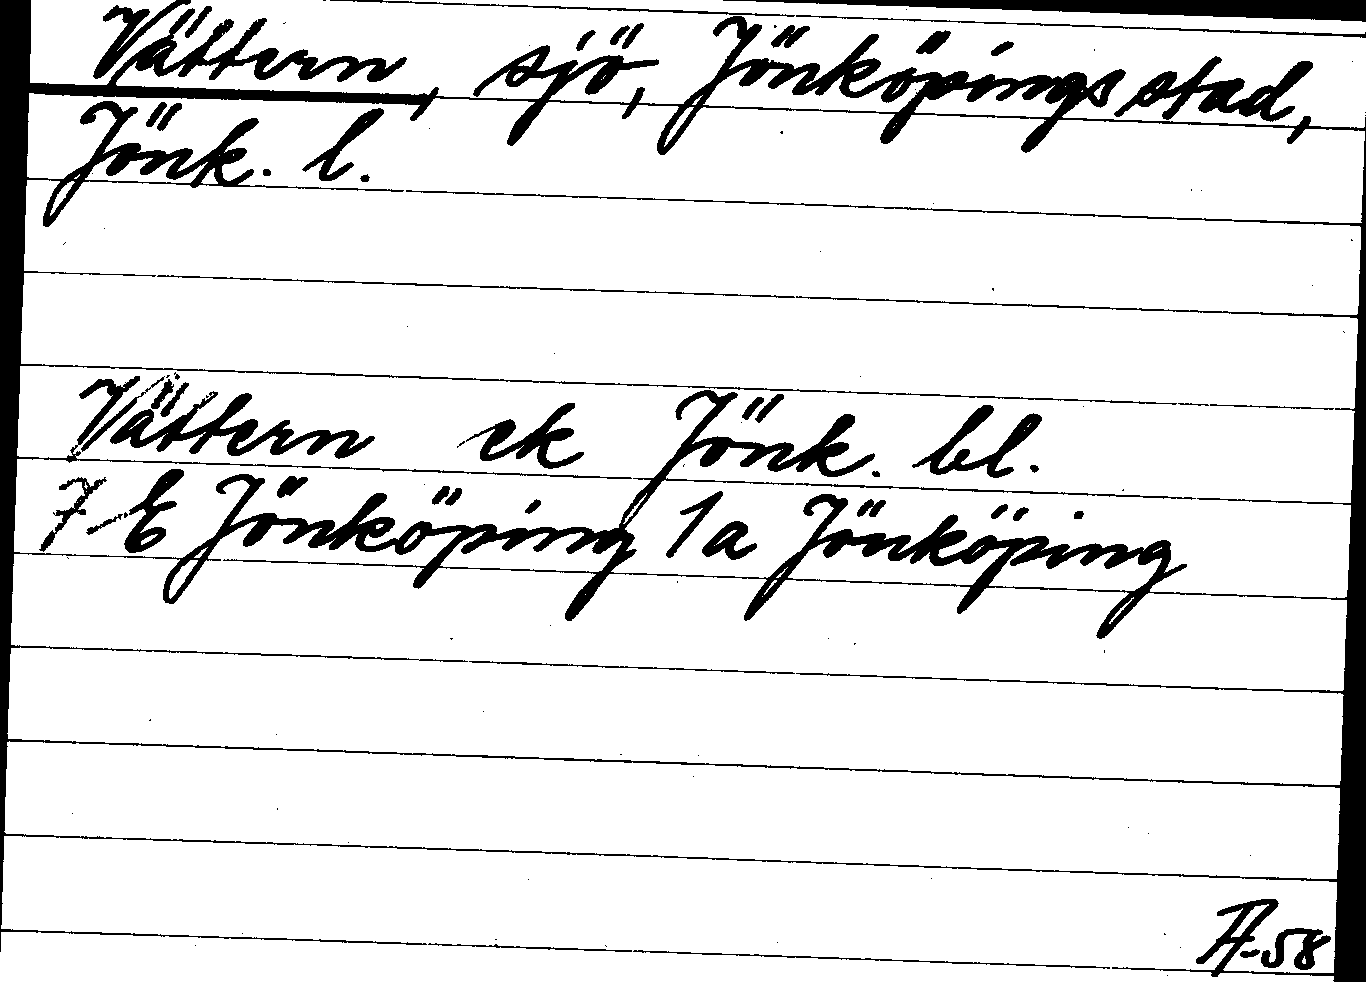 Vättern, sjö, Jönköpings stad,
Jönk. l.
Vättern ek Jönk. bl.
7 E Jönköping 1a Jönköping
-58